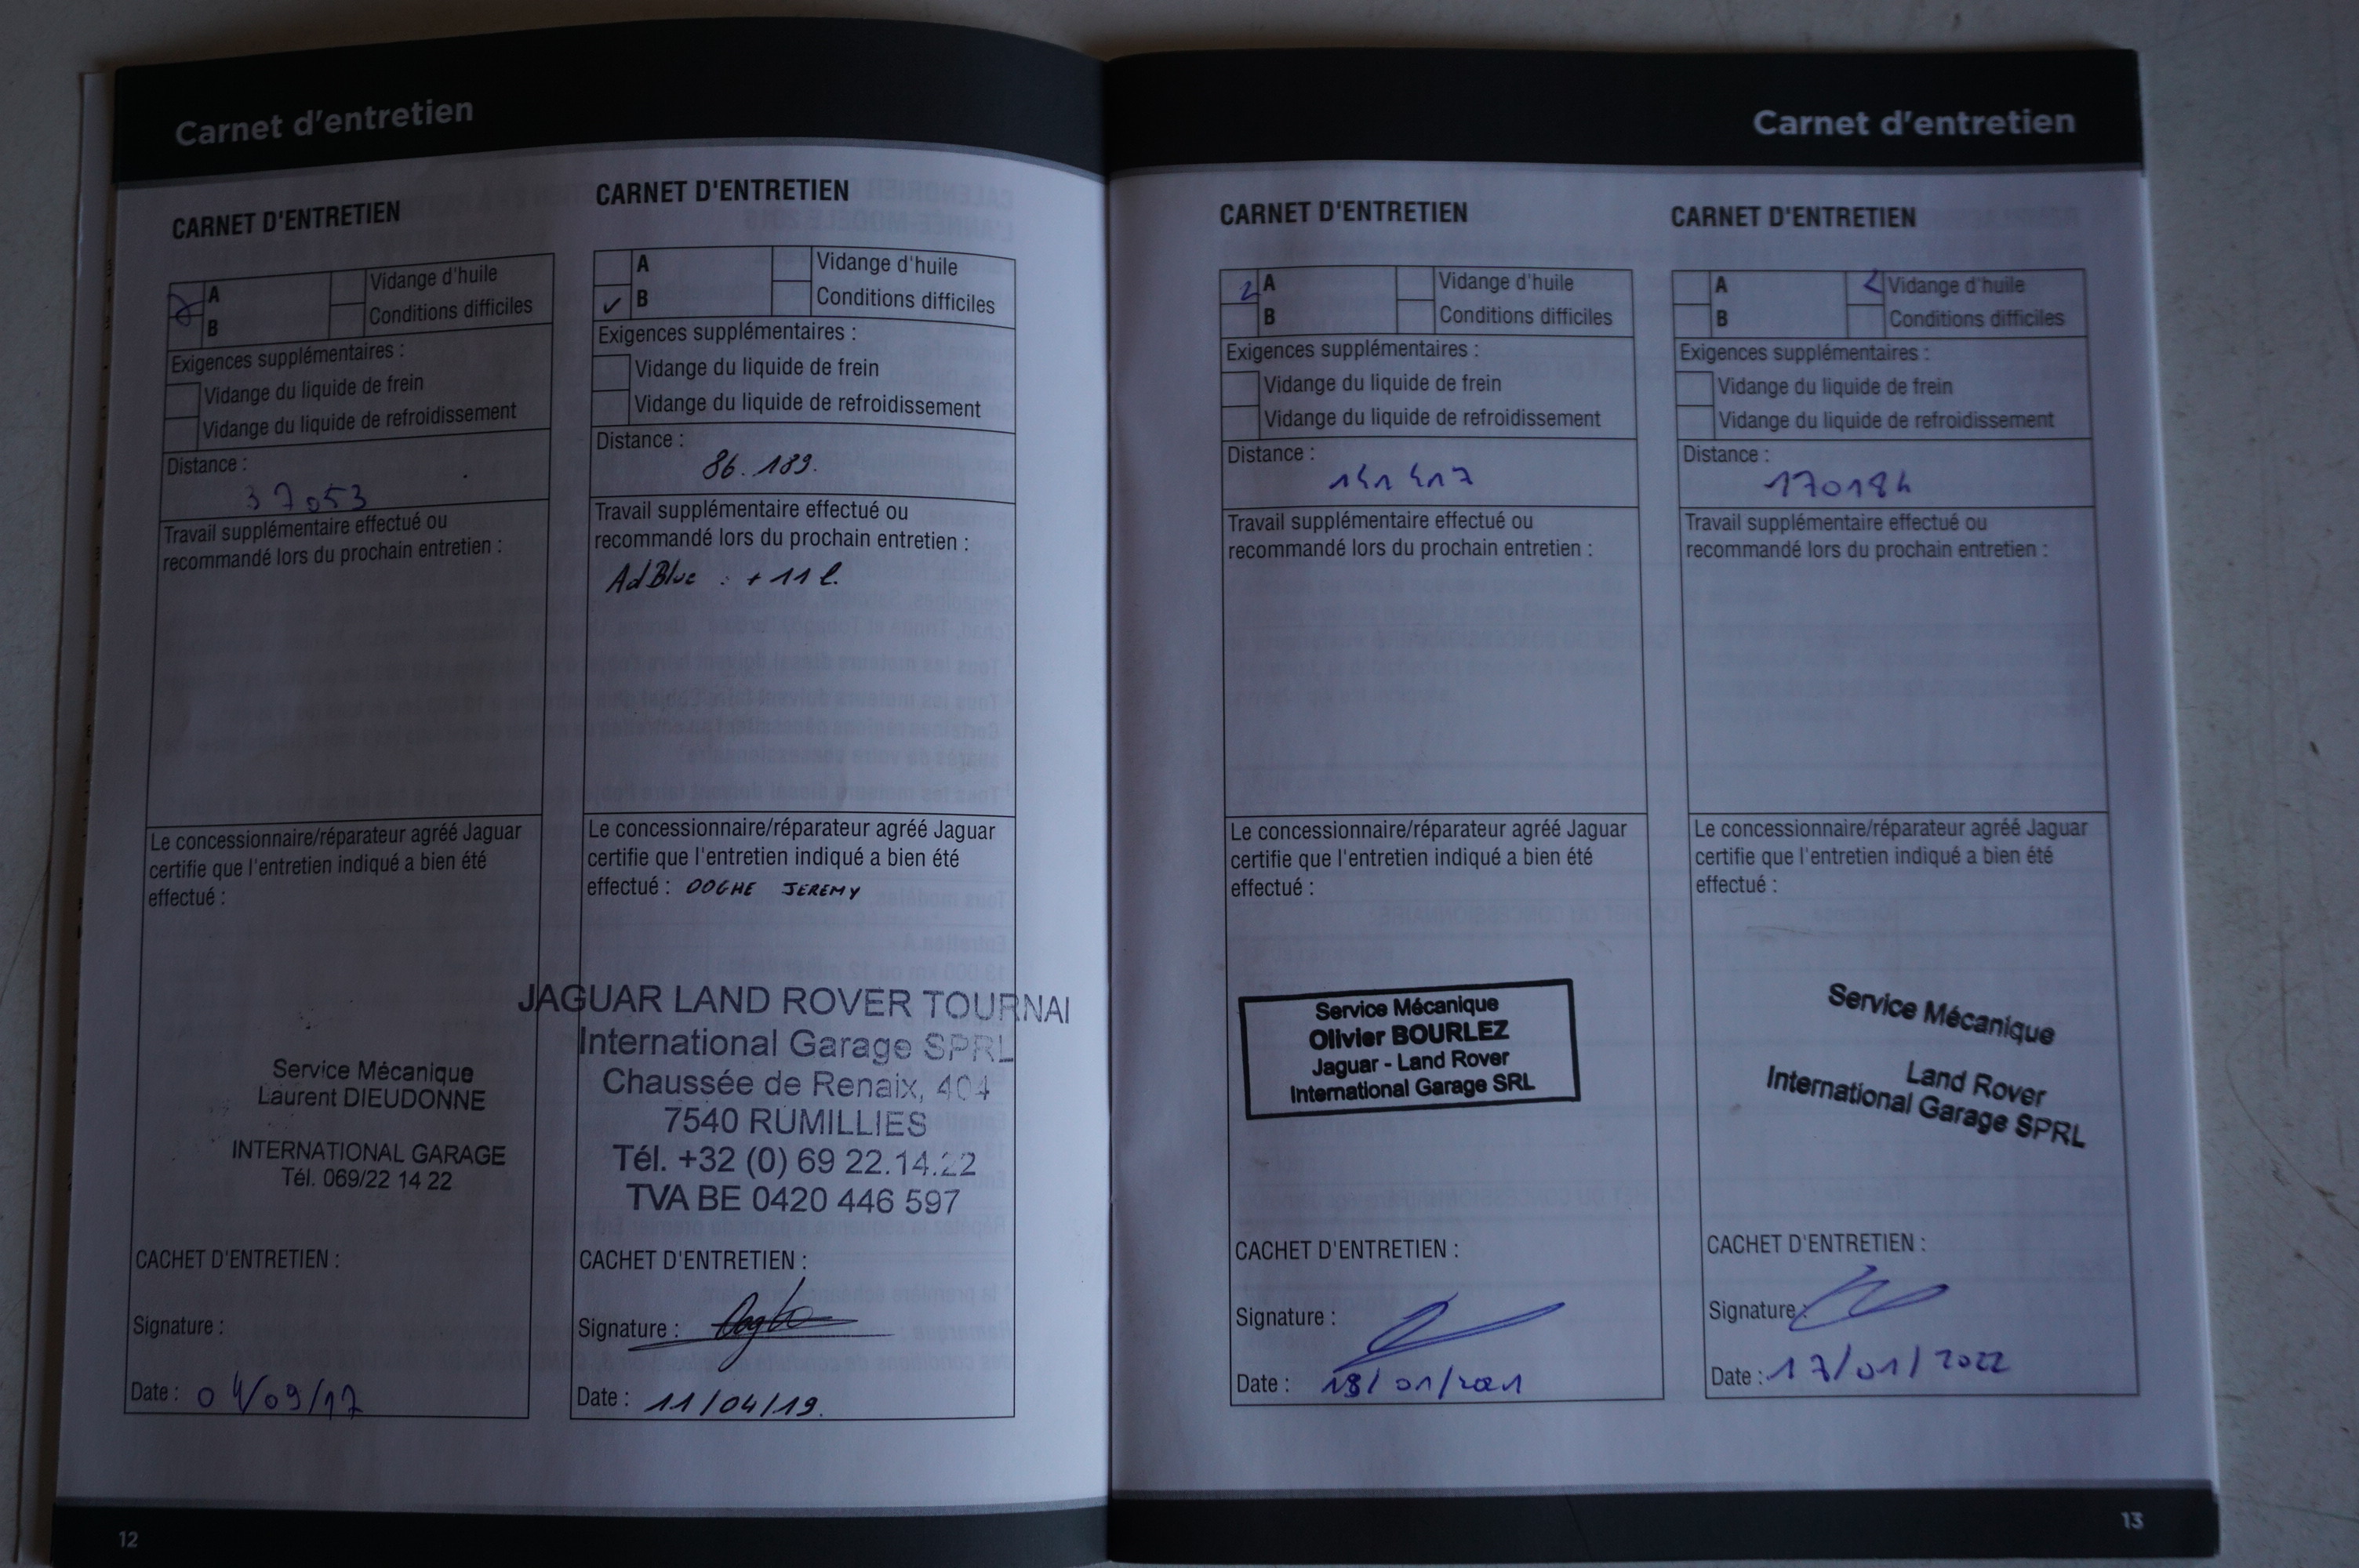 Carnet d'entretien
CARNET D'ENTRETIEN
A
B
Vidange d'huile
Conditions difficiles
Exigences supplémentaires :
Vidange du liquide de frein
Vidange du liquide de refroidissement
Distance :
37053
Travail supplémentaire effectué ou
recommandé lors du prochain entretien :
Le concessionnaire/réparateur agréé Jaguar
certifie que l'entretien indiqué a bien été
effectué :
Service Mécanique
Laurent DIEUDONNE
INTERNATIONAL GARAGE
Tél. 069/22 14 22
CACHET D'ENTRETIEN :
Signature :
Date : 04/09/17
CARNET D'ENTRETIEN
A
B
Vidange d'huile
Conditions difficiles
Exigences supplémentaires :
Vidange du liquide de frein
Vidange du liquide de refroidissement
Distance :
86.189.
Travail supplémentaire effectué ou
recommandé lors du prochain entretien :
AdBlue : +11 l.
Le concessionnaire/réparateur agréé Jaguar
certifie que l'entretien indiqué a bien été
effectué : OOGHE JEREMY
JAGUAR LAND ROVER TOURNAI
International Garage SPRL
Chaussée de Renaix, 404
7540 RUMILLIES
Tél. +32 (0) 69 22.14.22
TVA BE 0420 446 597
CACHET D'ENTRETIEN :
Signature :
Date : 11/04/19.
12
Carnet d'entretien
CARNET D'ENTRETIEN
A
B
Vidange d'huile
Conditions difficiles
Exigences supplémentaires :
Vidange du liquide de frein
Vidange du liquide de refroidissement
Distance :
141417
Travail supplémentaire effectué ou
recommandé lors du prochain entretien :
Le concessionnaire/réparateur agréé Jaguar
certifie que l'entretien indiqué a bien été
effectué :
Service Mécanique
Olivier BOURLEZ
Jaguar - Land Rover
International Garage SRL
CACHET D'ENTRETIEN :
Signature :
Date : 18/01/2021
CARNET D'ENTRETIEN
A
B
Vidange d'huile
Conditions difficiles
Exigences supplémentaires :
Vidange du liquide de frein
Vidange du liquide de refroidissement
Distance :
170184
Travail supplémentaire effectué ou
recommandé lors du prochain entretien :
Le concessionnaire/réparateur agréé Jaguar
certifie que l'entretien indiqué a bien été
effectué :
Service Mécanique
Land Rover
International Garage SPRL
CACHET D'ENTRETIEN :
Signature :
Date : 17/01/2022
13